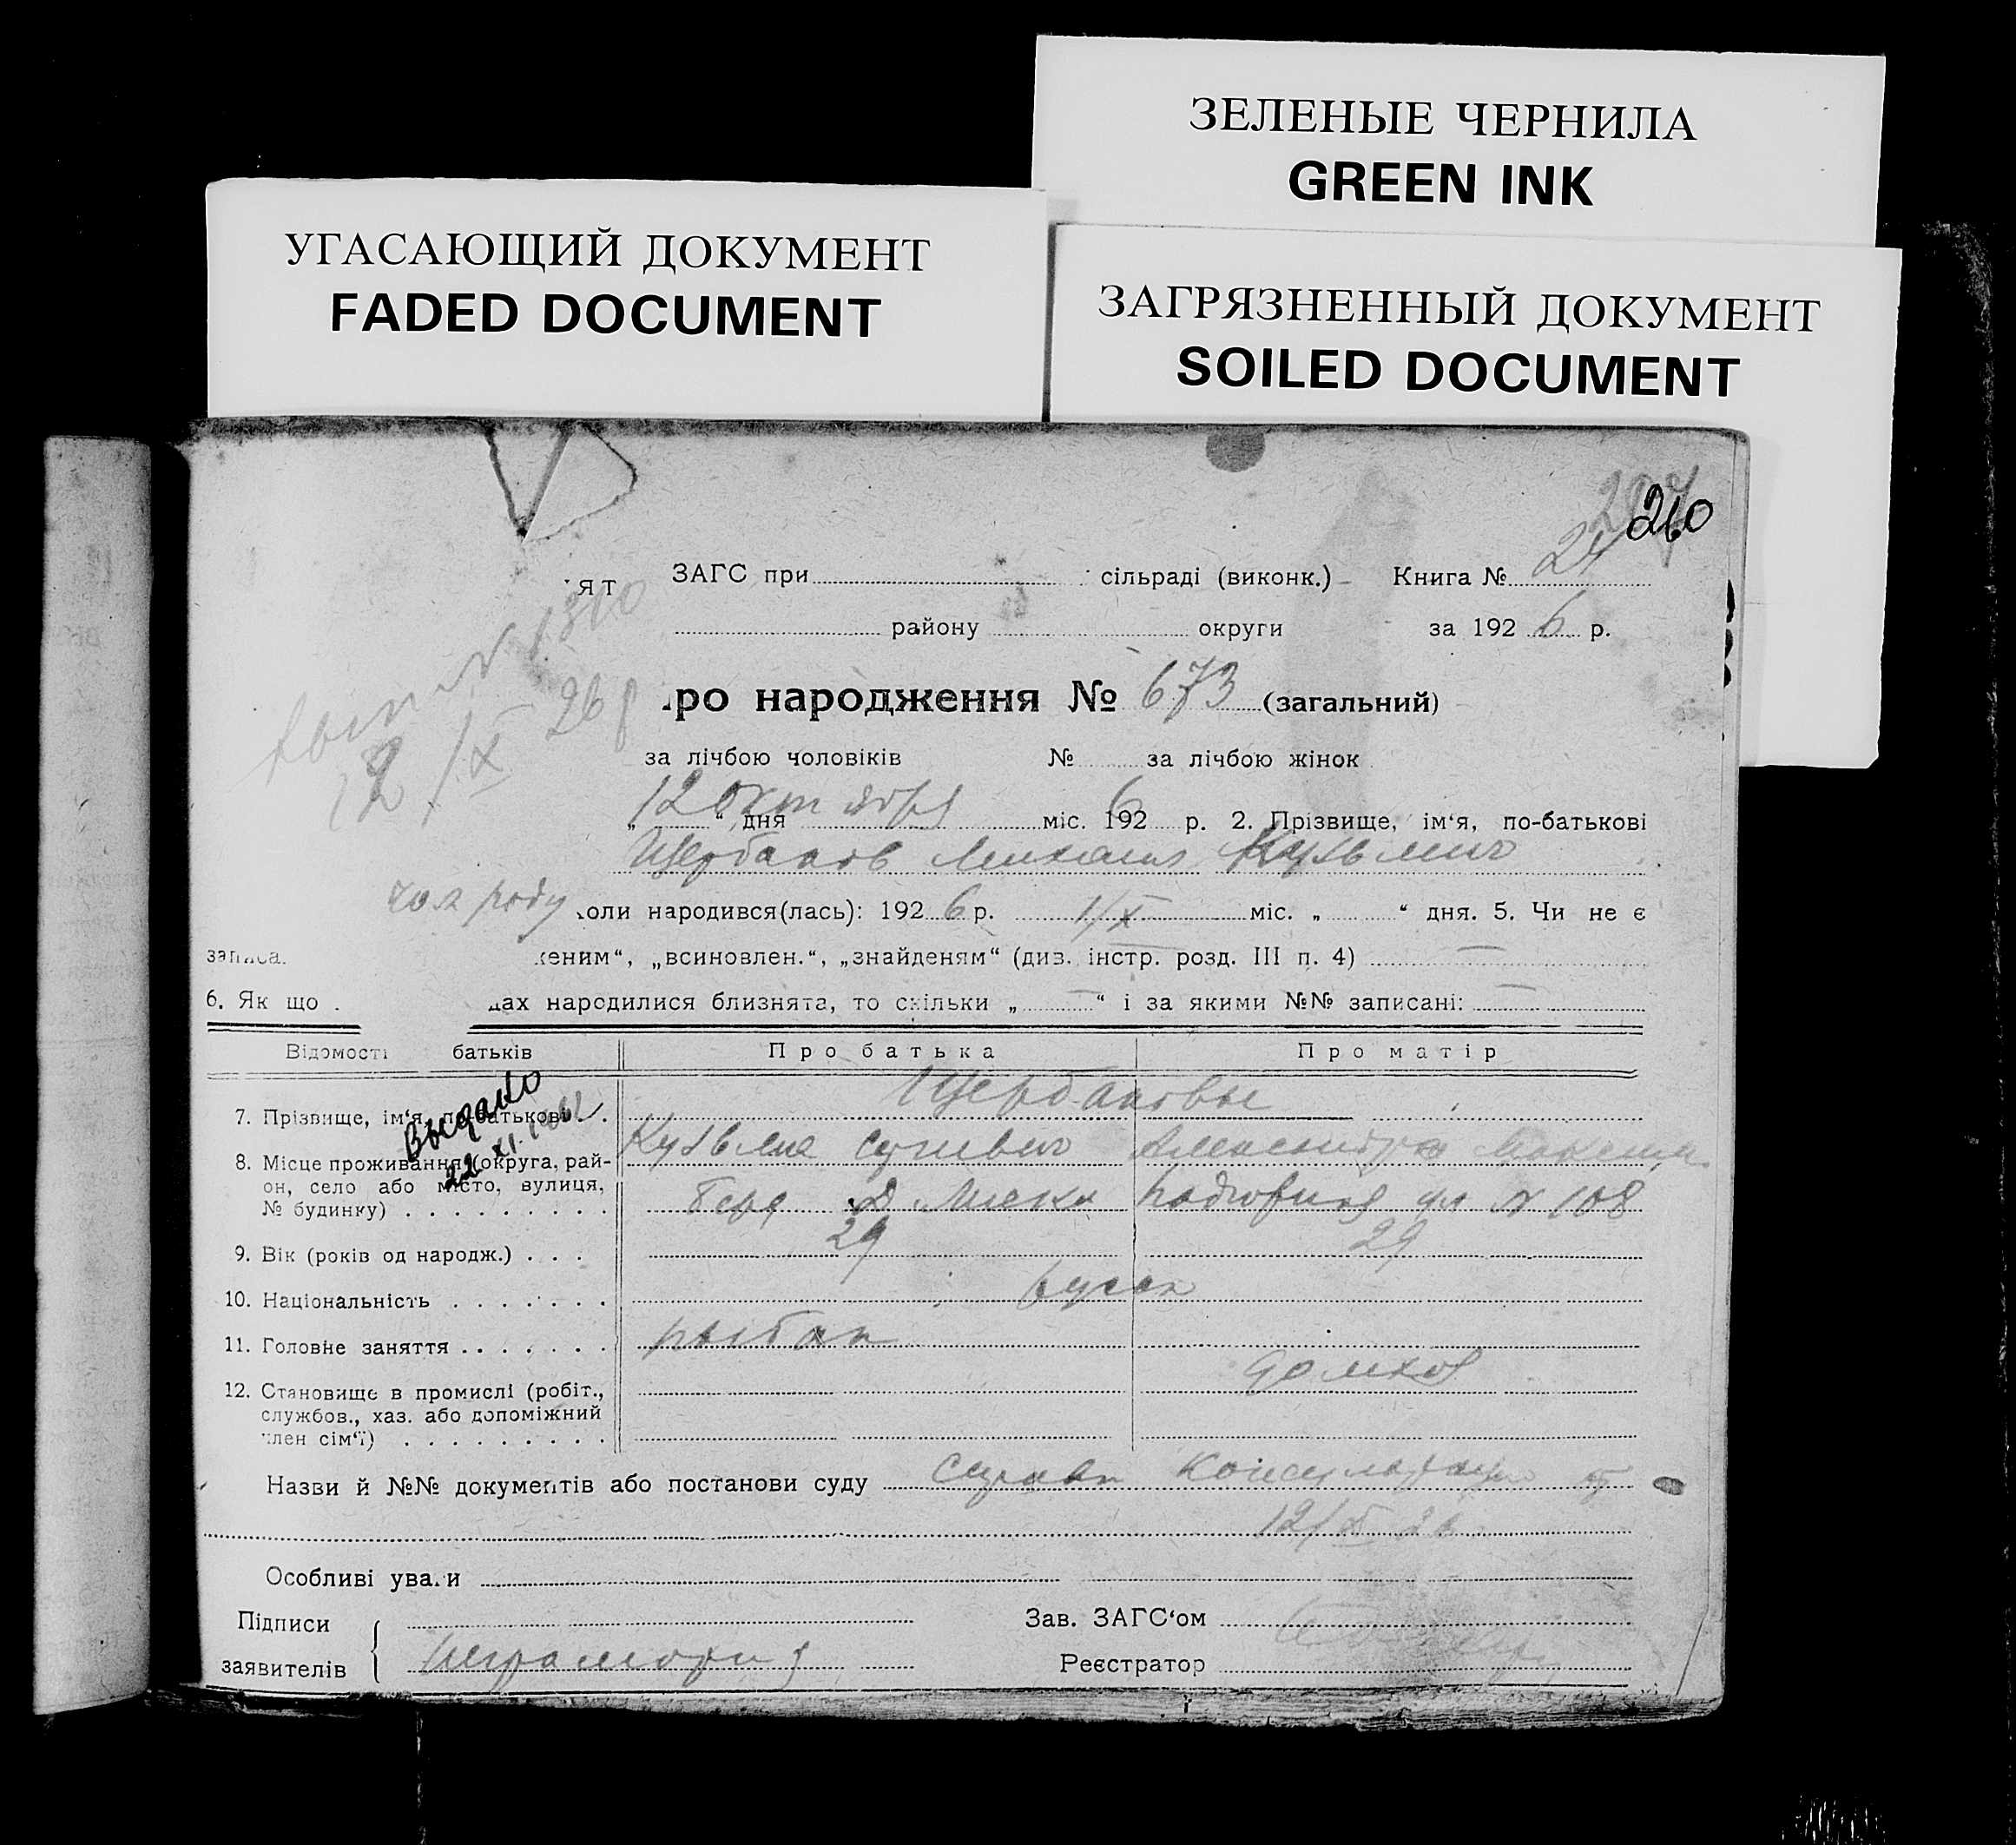 ЗЕЛЕНЫЕ ЧЕРНИЛА
GREEN INK
УГАСАЮЩИЙ ДОКУМЕНТ
FADED DOCUMENT
ЗАГРЯЗНЕННЫЙ ДОКУМЕНТ
SOILED DOCUMENT
260
ЗАГС при сільраді (виконк.) Книга № 24
району округи за 1926 р.
ро народження № 673 (загальний)
12/X 26 р
за лічбою чоловіків № за лічбою жінок
„12“ дня октября міс. 1926 р. 2. Прізвище, ім‘я, по-батькові
Щербаков Михаил Кузьмич
чол роду коли народився(лась): 1926 р. 1/X міс. „ “ дня. 5. Чи не є
записа. женим“, „всиновлен.“, „знайденям“ (див. інстр. розд. III п. 4) —
6. Як що дах народилися близнята, то скільки „—“ і за якими №№ записані: —
Відомості батьків Про батька Про матір
Щербаковы
7. Прізвище, ім‘я, по-батькові
Выдано
22 XI
Кузьма Александра
8. Місце проживання (округа, район, село або місто, вулиця,
№ будинку) ул № 108
9. Вік (років од народж.) 29 29
10. Національність русск
11. Головне заняття рыбак
домхоз
12. Становище в промислі (робіт.,
службов., хаз. або допоміжний
член сім‘ї)
Назви й №№ документів або постанови суду справк консультации от
12/X 26
Особливі уваги
Підписи Зав. ЗАГС‘ом
заявителів неграмотн Реєстратор